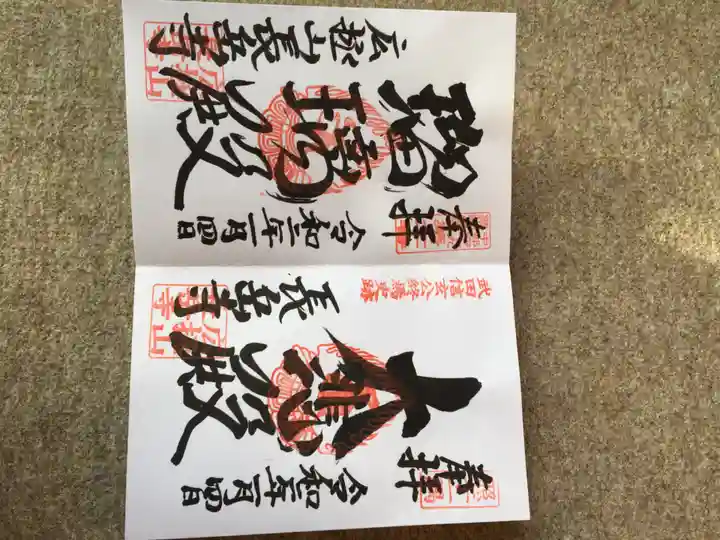 奉拝
令和二年一月四日
大悲殿
長岳寺
武田信玄公終焉史跡
奉拝
令和二年一月四日
瑠璃殿
広拯山長岳寺